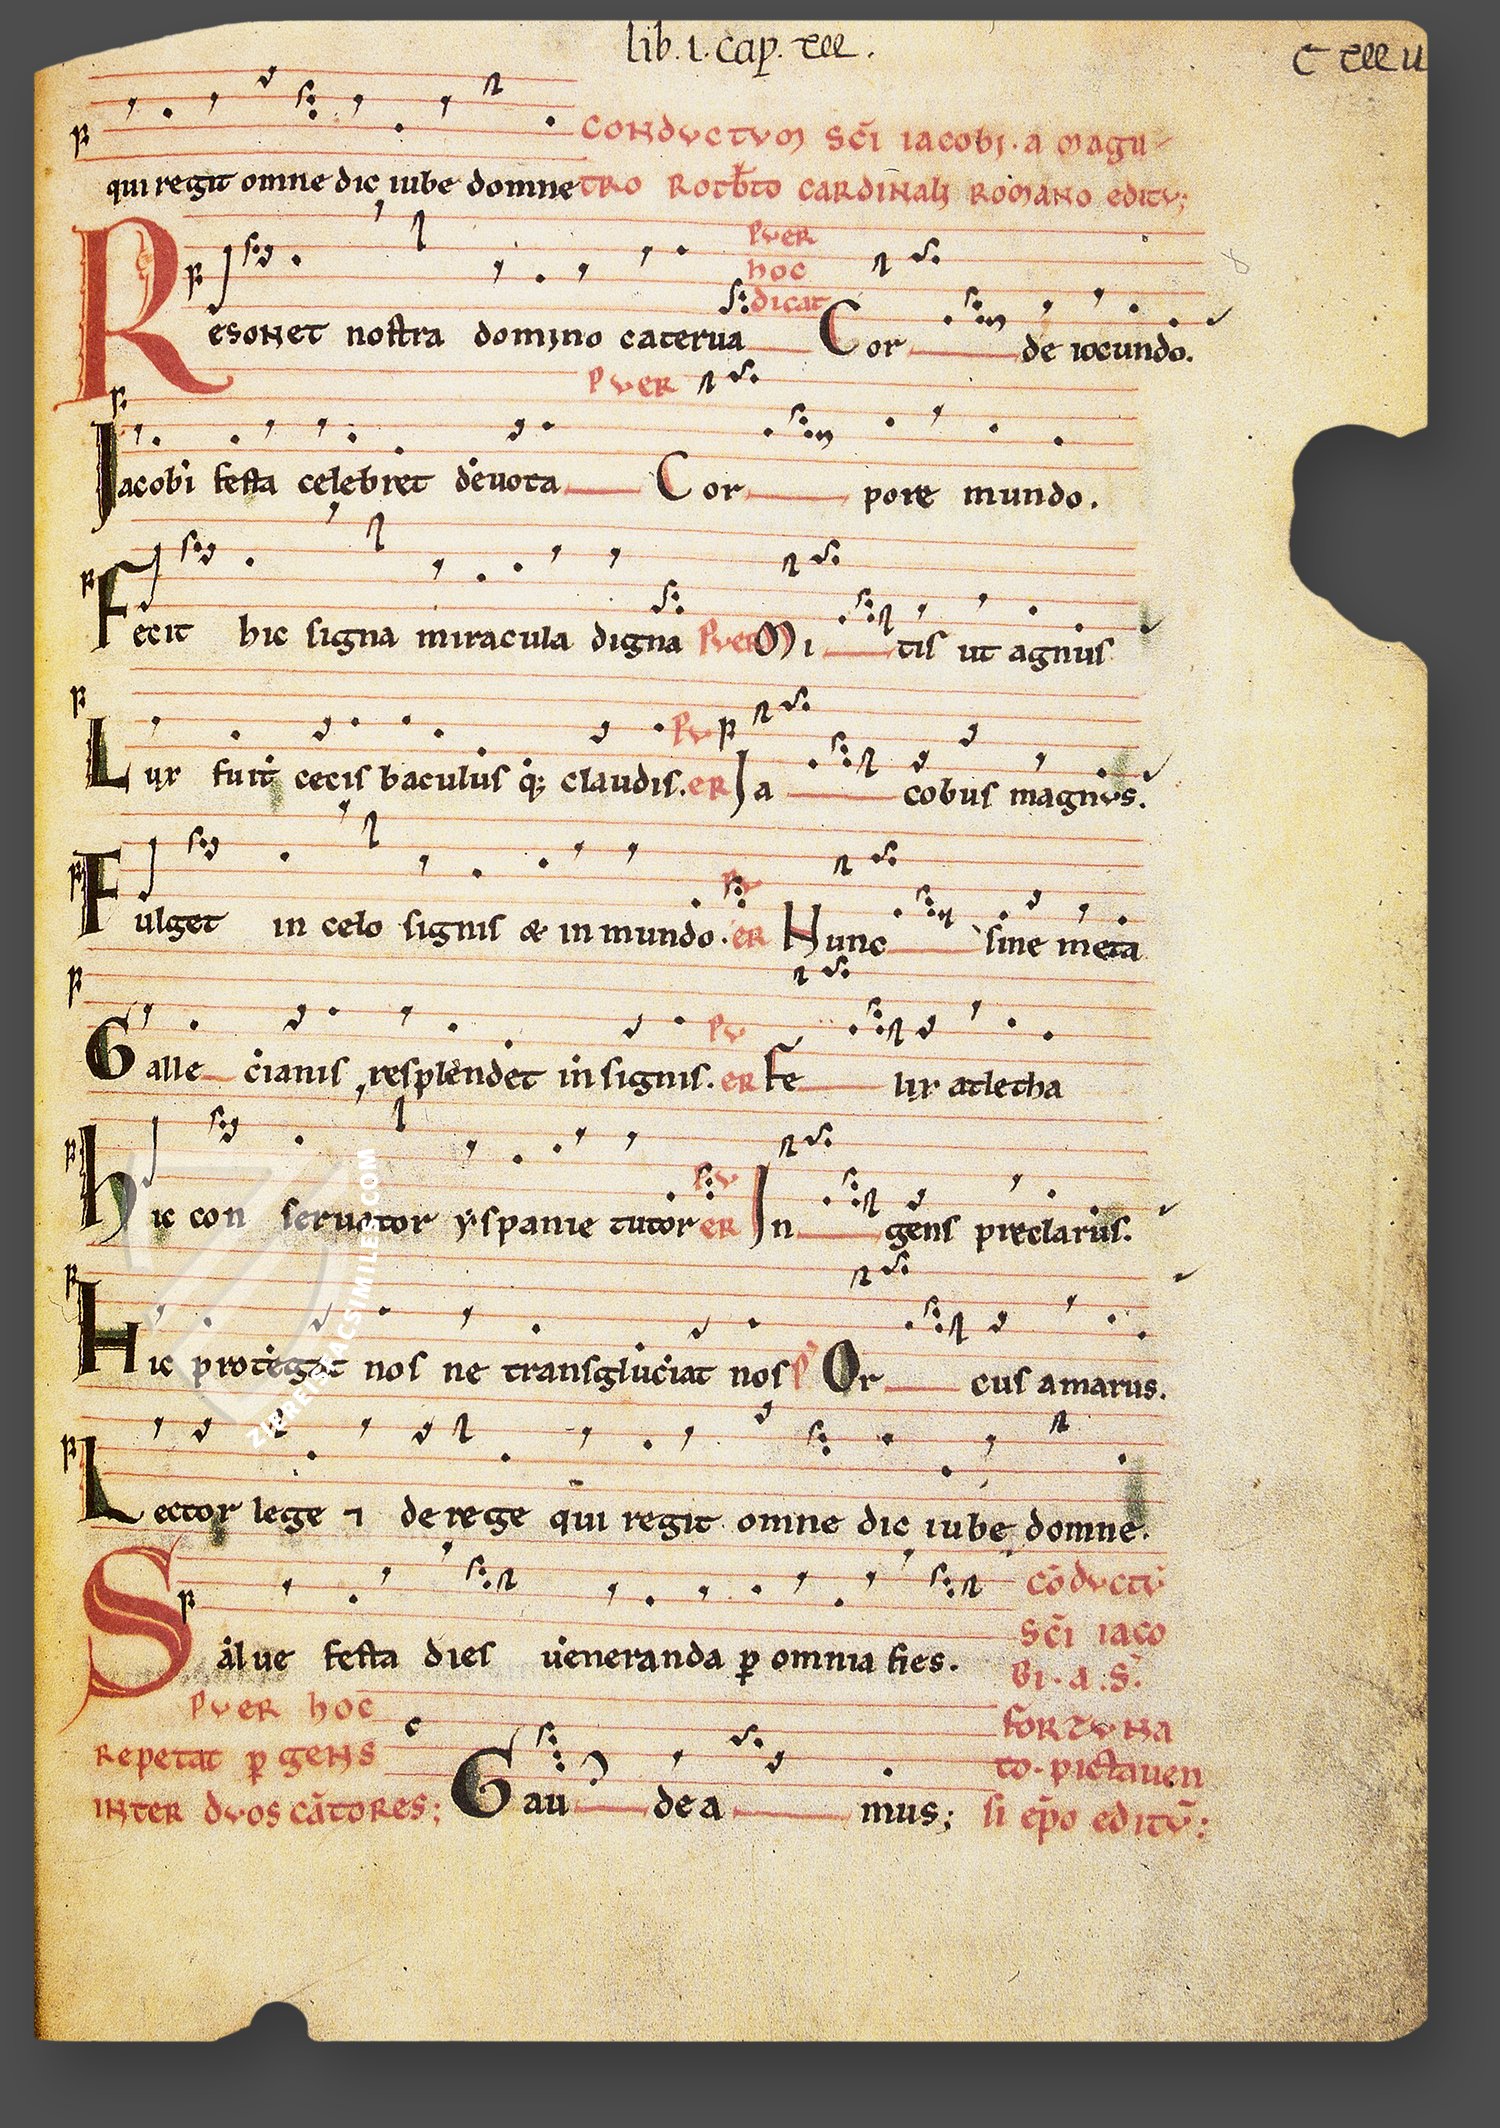 lib. i. cap. xxx.
C xxx u
CONDUCTUM SCĪ IACOBI. A MAGII
qui regit omne dic iube domne TRO ROTBTO CARDINALI ROMANO EDITU;
PUER
HOC
DICAT
Resonet nostra domino caterua Cor de iocundo.
PUER
Iacobi festa celebret deuota Cor pore mundo.
Fecit hic signa miracula digna PUER Mi tis ut agnus
Lux fuit cecis baculus q; claudis. PUER Ia cobus magnus.
Fulget in celo signis & in mundo. PUER Hunc sine meta
Galle cianis resplendet insignis. PUER Fe lix atletha
Hic con seruator yspanie tutor PUER In gens preclarus.
Hic protegat nos ne transgluciat nos P Or cus amarus.
Lector lege ⁊ de rege qui regit omne dic iube domne.
Salue festa dies ueneranda ꝑ omnia fies.
CŌDUCTŪ
SCĪ IACO
BI. A. S.
FORTUNA
TO. PICTAUEN
SI EPO EDITŪ:
PUER HOC
REPETAT ꝑ GENS
INTER DUOS CĀTORES;
Gau de a mus;
ZIEREIS FACSIMILES.COM